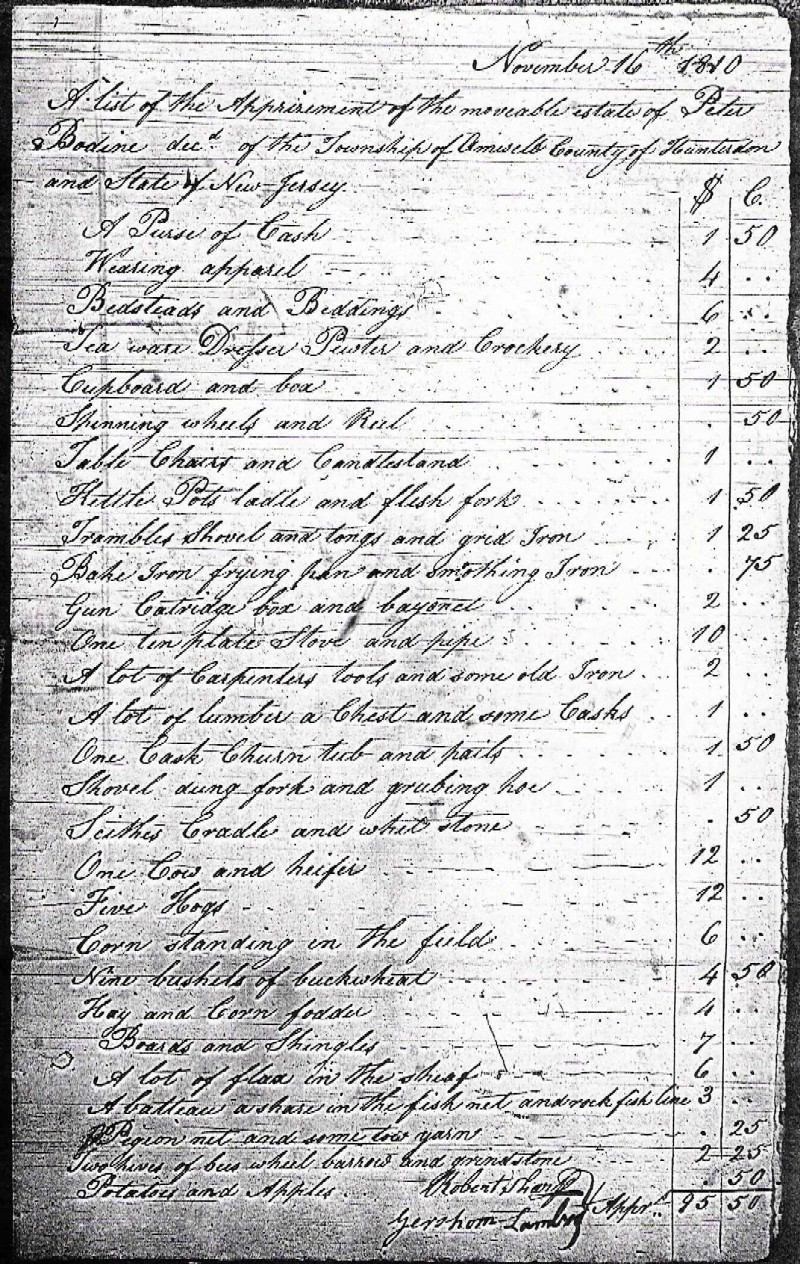 November 16th 1810
A list of the Apprizement of the moveable estate of Peter
Bodine decd. of the Township of Amwell County of Hunterdon
and State of New-Jersey
$ C.
A Purse of Cash 1 50
Wearing apparel 4 ..
Bedsteads and Beddings 6 ..
Tea ware Dresser Pewter and Crockery 2 ..
Cupboard and box 1 50
Spinning wheels and Reel . 50
Table Chairs and Candlestand 1 ..
Kettle Pots ladle and flesh fork 1 50
Trambles Shovel and tongs and grid Iron 1 25
Bake Iron frying pan and smothing Iron . 75
Gun Catridge box and bayonet 2 ..
One ten plate Stove and pipe 10 ..
A lot of Carpenters tools and some old Iron 2 ..
A lot of lumber a Chest and some Casks 1 ..
One Cask Churn tub and pails 1 50
Shovel dung fork and grubing hoe 1 ..
Scithes Cradle and whet stone . 50
One Cow and heifer 12 ..
Five Hogs 12 ..
Corn standing in the field 6 ..
Nine bushels of buckwheat 4 50
Hay and Corn fodder 4 ..
Boards and Shingles 7 ..
A lot of flax in the sheaf 6 ..
A batteau a share in the fish net and rock fish line 3 ..
Pigeon net and some tow yarn . 25
Two hives of bees wheel barrow and grindstone 2 25
Potatoes and Apples . 50
Robert Sharp
Gershom Lambert
Apprs. 95 50